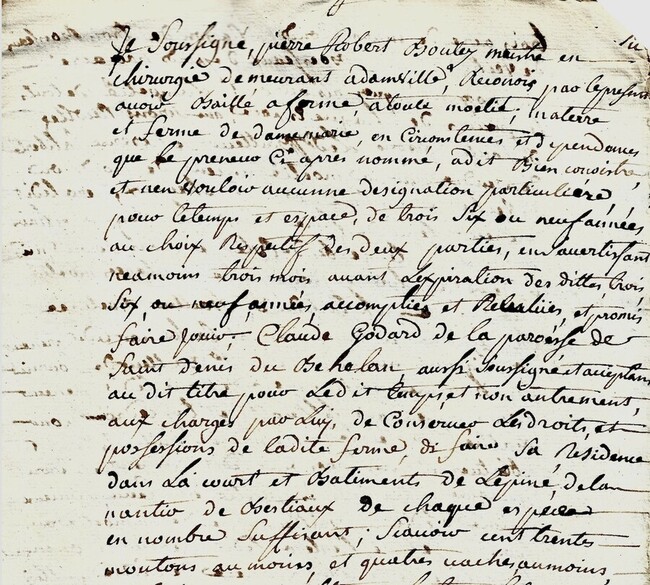 Je Soussigné, pierre Robert Bouley maitre en
chirurgie demeurant adamville, Reconois par lepresent
avoir Baillé aferme, àtoute moetié, materre
et ferme de damemarie, en Circonstences et dependences
que le preneur Ci apres nommé, adit Bien conoistre,
et nen vouloir aucunne designation particuliere,
pour letemps et espace, de trois Six ou neuf années
au choix Respectif des deux parties, en avertissant
neamoins trois mois avant Lexpiration des dittes, trois
Six, ou neuf, années, accomplies et Revolües, et promis
faire jouir, Claude Godard de la paroesse de
Saint denis du Behelan, aussi Soussigné et acceptans
au dit titre pour Ledit temps, et non autrement,
aux charges par Luy, de Conserver Lesdroits, et
possessions de ladite ferme, de faire Sa Residence
dans La court et Batiments de Lepiné, dela
nantir de Bestiaux de chaque espece
en nombre Suffisant; Scavoir cent trentes
moutons au moins, et quatres vaches aumoins,